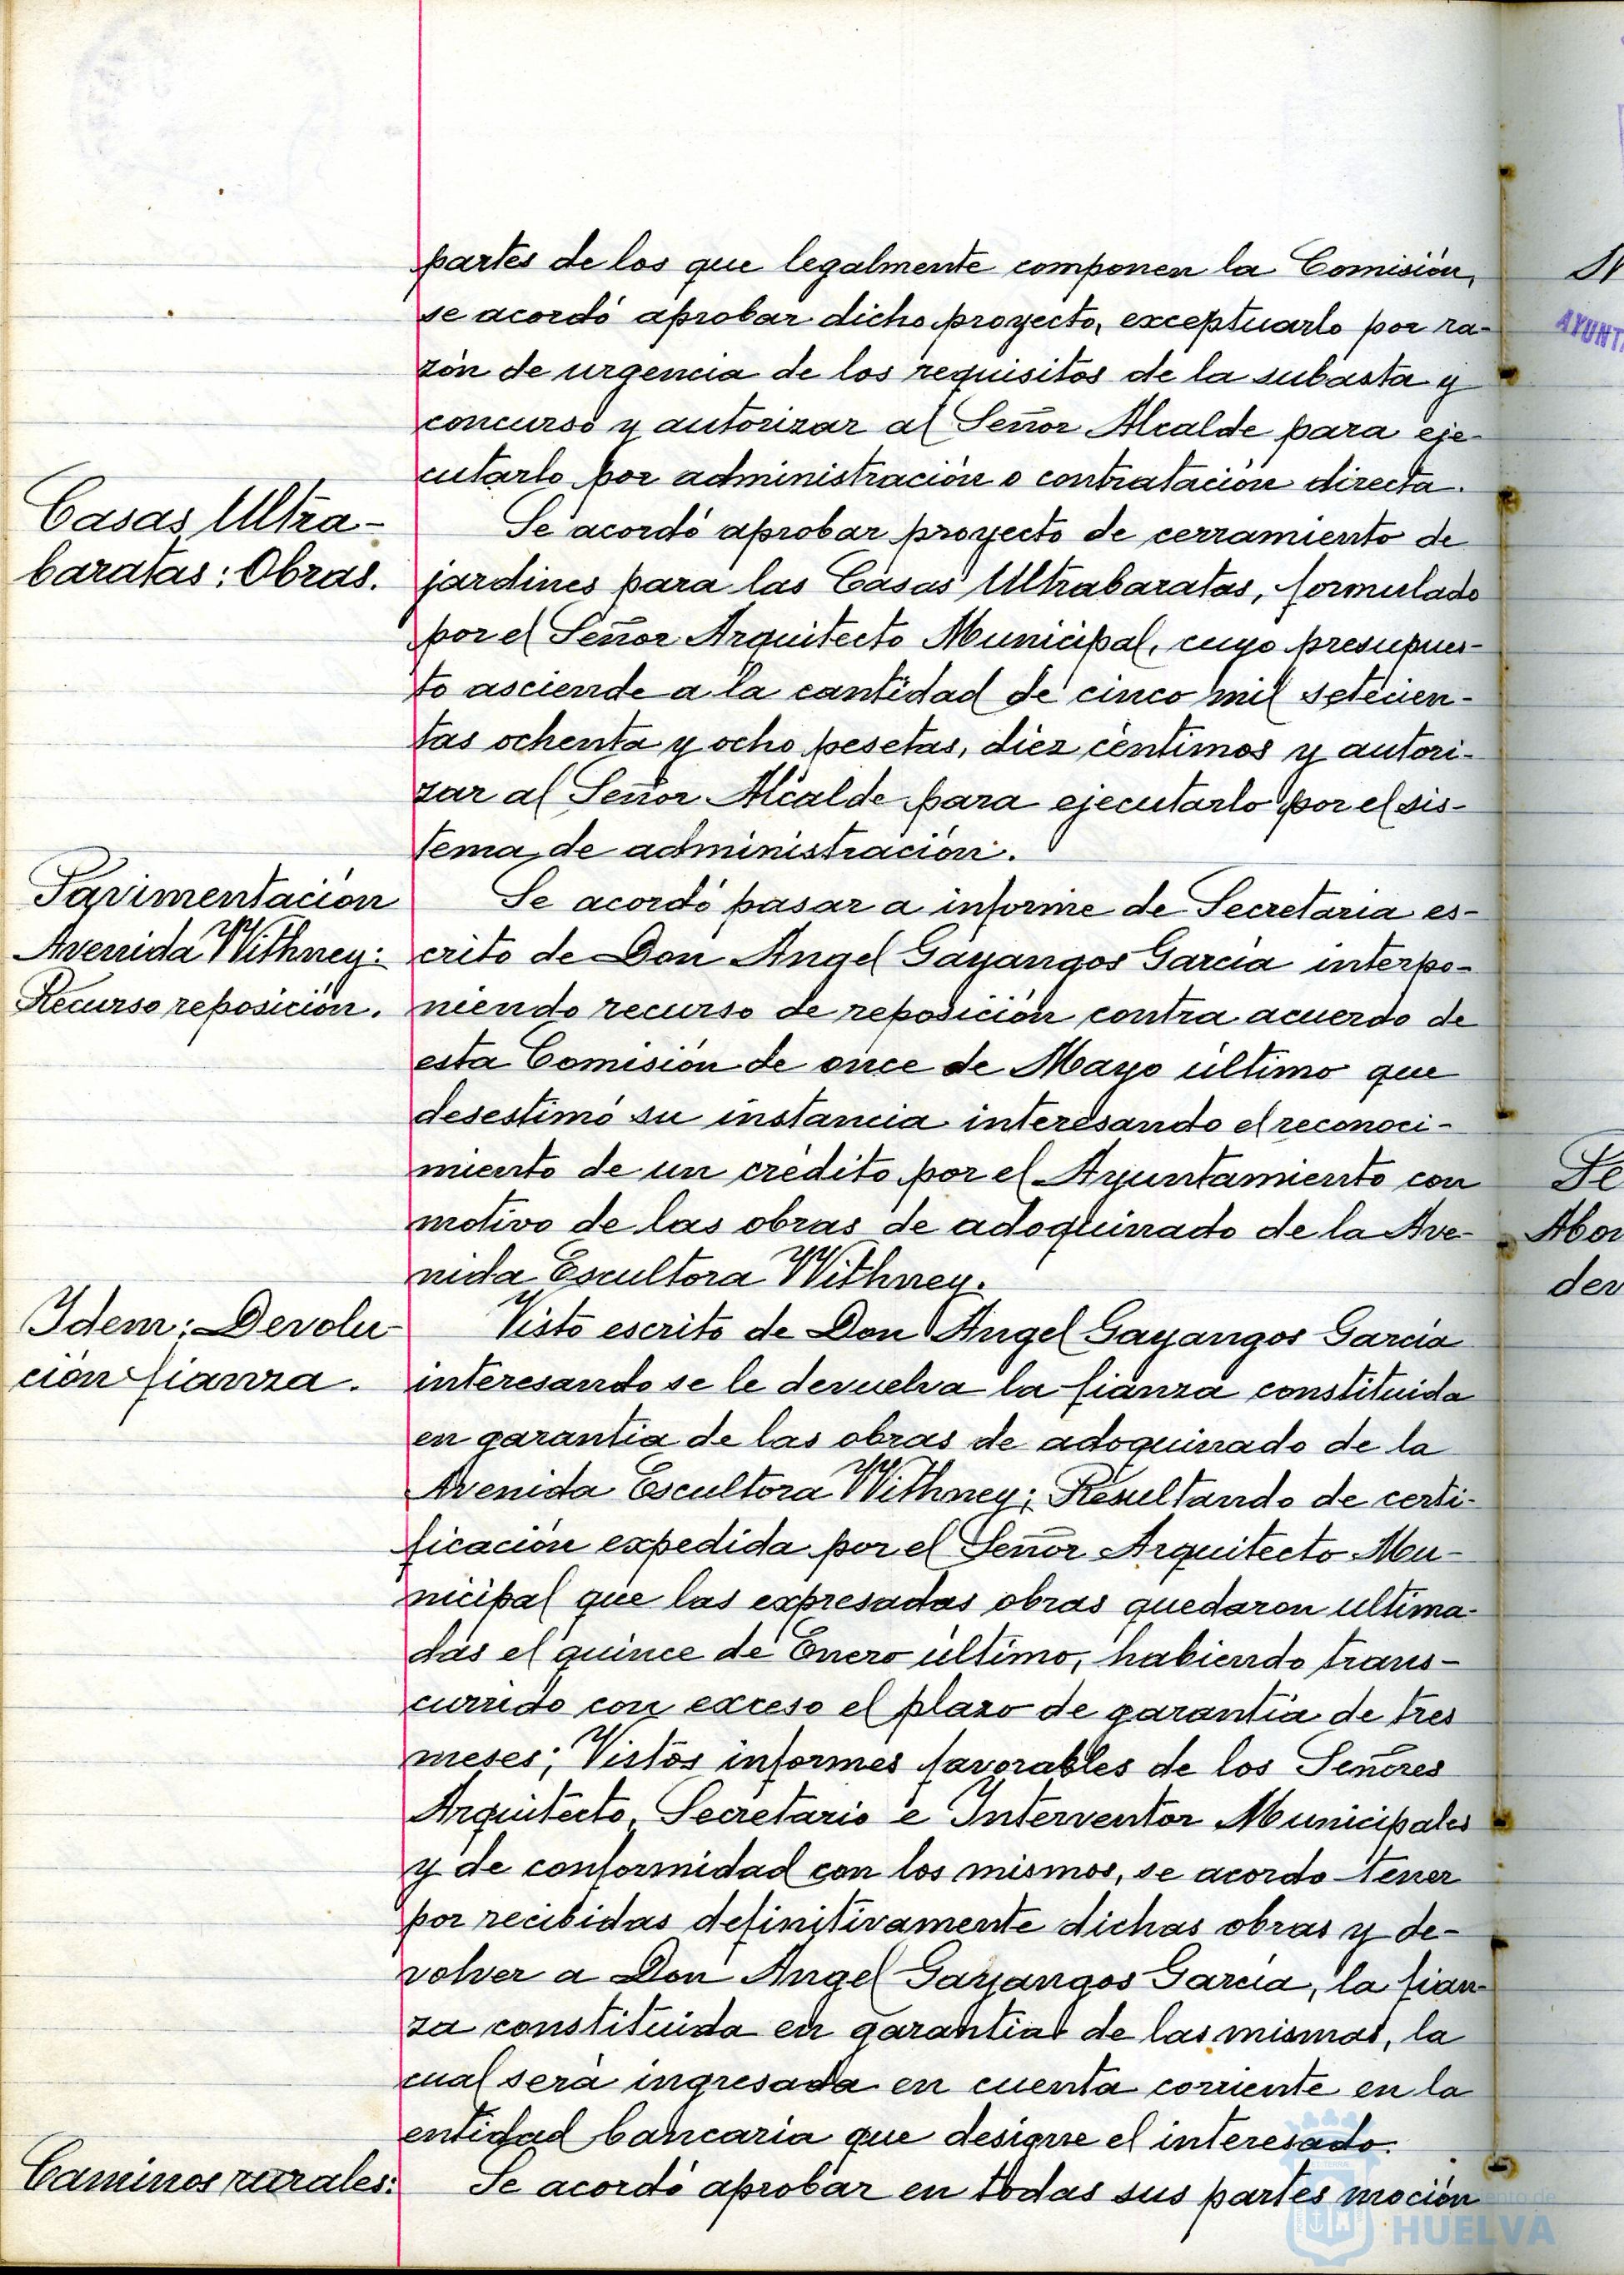 partes de los que legalmente componen la Comisión,
se acordó aprobar dicho proyecto, exceptuarlo por ra-
zón de urgencia de los requisitos de la subasta y
concurso y autorizar al Señor Alcalde para eje-
cutarlo por administración o contratación directa.
Casas Ultra-
baratas: Obras.
Se acordó aprobar proyecto de cerramiento de
jardines para las Casas Ultrabaratas, formulado
por el Señor Arquitecto Municipal, cuyo presupues-
to asciende a la cantidad de cinco mil setecien-
tas ochenta y ocho pesetas, diez céntimos y autori-
zar al Señor Alcalde para ejecutarlo por el sis-
tema de administración.
Pavimentación
Avenida Withney:
Recurso reposición.
Se acordó pasar a informe de Secretaria es-
crito de Don Angel Gayangos García interpo-
niendo recurso de reposición contra acuerdo de
esta Comisión de once de Mayo último que
desestimó su instancia interesando el reconoci-
miento de un crédito por el Ayuntamiento con
motivo de las obras de adoquinado de la Ave-
nida Escultora Withney.
Idem: Devolu-
ción fianza.
Visto escrito de Don Angel Gayangos García
interesando se le devuelva la fianza constituida
en garantía de las obras de adoquinado de la
Avenida Escultora Withney; Resultando de certi-
ficación expedida por el Señor Arquitecto Mu-
nicipal que las expresadas obras quedaron ultima-
das el quince de Enero último, habiendo trans-
currido con exceso el plazo de garantía de tres
meses; Vistos informes favorables de los Señores
Arquitecto, Secretario e Interventor Municipales
y de conformidad con los mismos, se acordó tener
por recibidas definitivamente dichas obras y de-
volver a Don Angel Gayangos García, la fian-
za constituida en garantia de las mismas, la
cual será ingresada en cuenta corriente en la
entidad bancaria que designe el interesado.
Caminos rurales:
Se acordó aprobar en todas sus partes moción
AYUNT
Abor
der
HUELVA